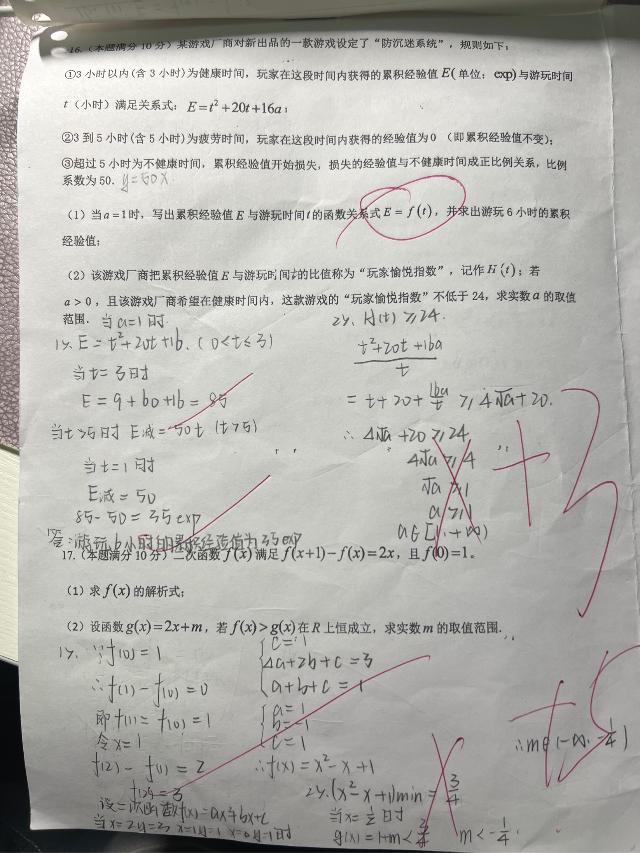 16.（本题满分 10 分）某游戏厂商对新出品的一款游戏设定了“防沉迷系统”，规则如下：
①3 小时以内(含 3 小时)为健康时间，玩家在这段时间内获得的累积经验值 E(单位：exp)与游玩时间
t（小时）满足关系式：E=t²+20t+16a；
②3 到 5 小时(含 5 小时)为疲劳时间，玩家在这段时间内获得的经验值为 0 （即累积经验值不变)；
③超过 5 小时为不健康时间，累积经验值开始损失，损失的经验值与不健康时间成正比例关系，比例
系数为 50. y=50x
（1）当 a=1时，写出累积经验值 E 与游玩时间 t 的函数关系式 E=f(t)，并求出游玩 6 小时的累积
经验值；
（2）该游戏厂商把累积经验值 E 与游玩时间 t 的比值称为“玩家愉悦指数”，记作 H(t)；若
a>0，且该游戏厂商希望在健康时间内，这款游戏的“玩家愉悦指数”不低于 24，求实数 a 的取值
范围.
当a=1时
1). E=t²+20t+16.（0<t≤3）
当t=3时
E=9+60+16=85
当t>5时 E减=50t（t>5）
当t=1时
E减=50
85-50=35exp
答:游玩6小时的累积经验值为35exp
2). H(t)≥24.
t²+20t+16a
/ t
=t+20+16a/t ≥4√a+20.
∴4√a+20≥24
4√a≥4
√a≥1
a≥1
a∈[1,+∞)
+3
17.（本题满分 10 分）二次函数 f(x) 满足 f(x+1)−f(x)=2x，且 f(0)=1。
（1）求 f(x) 的解析式；
（2）设函数 g(x)=2x+m，若 f(x)>g(x) 在 R 上恒成立，求实数 m 的取值范围.
1). ∵f(0)=1
∴f(1)-f(0)=0
即f(1)=f(0)=1
令x=1
f(2)-f(1)=2
f(2)=3
设二次函数f(x)=ax²+bx+c
当x=2 y=3 x=1 y=1 x=0 y=1时
{c=1
4a+2b+c=3
a+b+c=1
{a=1
b=-1
c=1
∴f(x)=x²-x+1
2). (x²-x+1)min=3/4
当x=1/2时
g(x)=1+m<3/4 m<-1/4.
∴m∈(-∞,-1/4)
+5